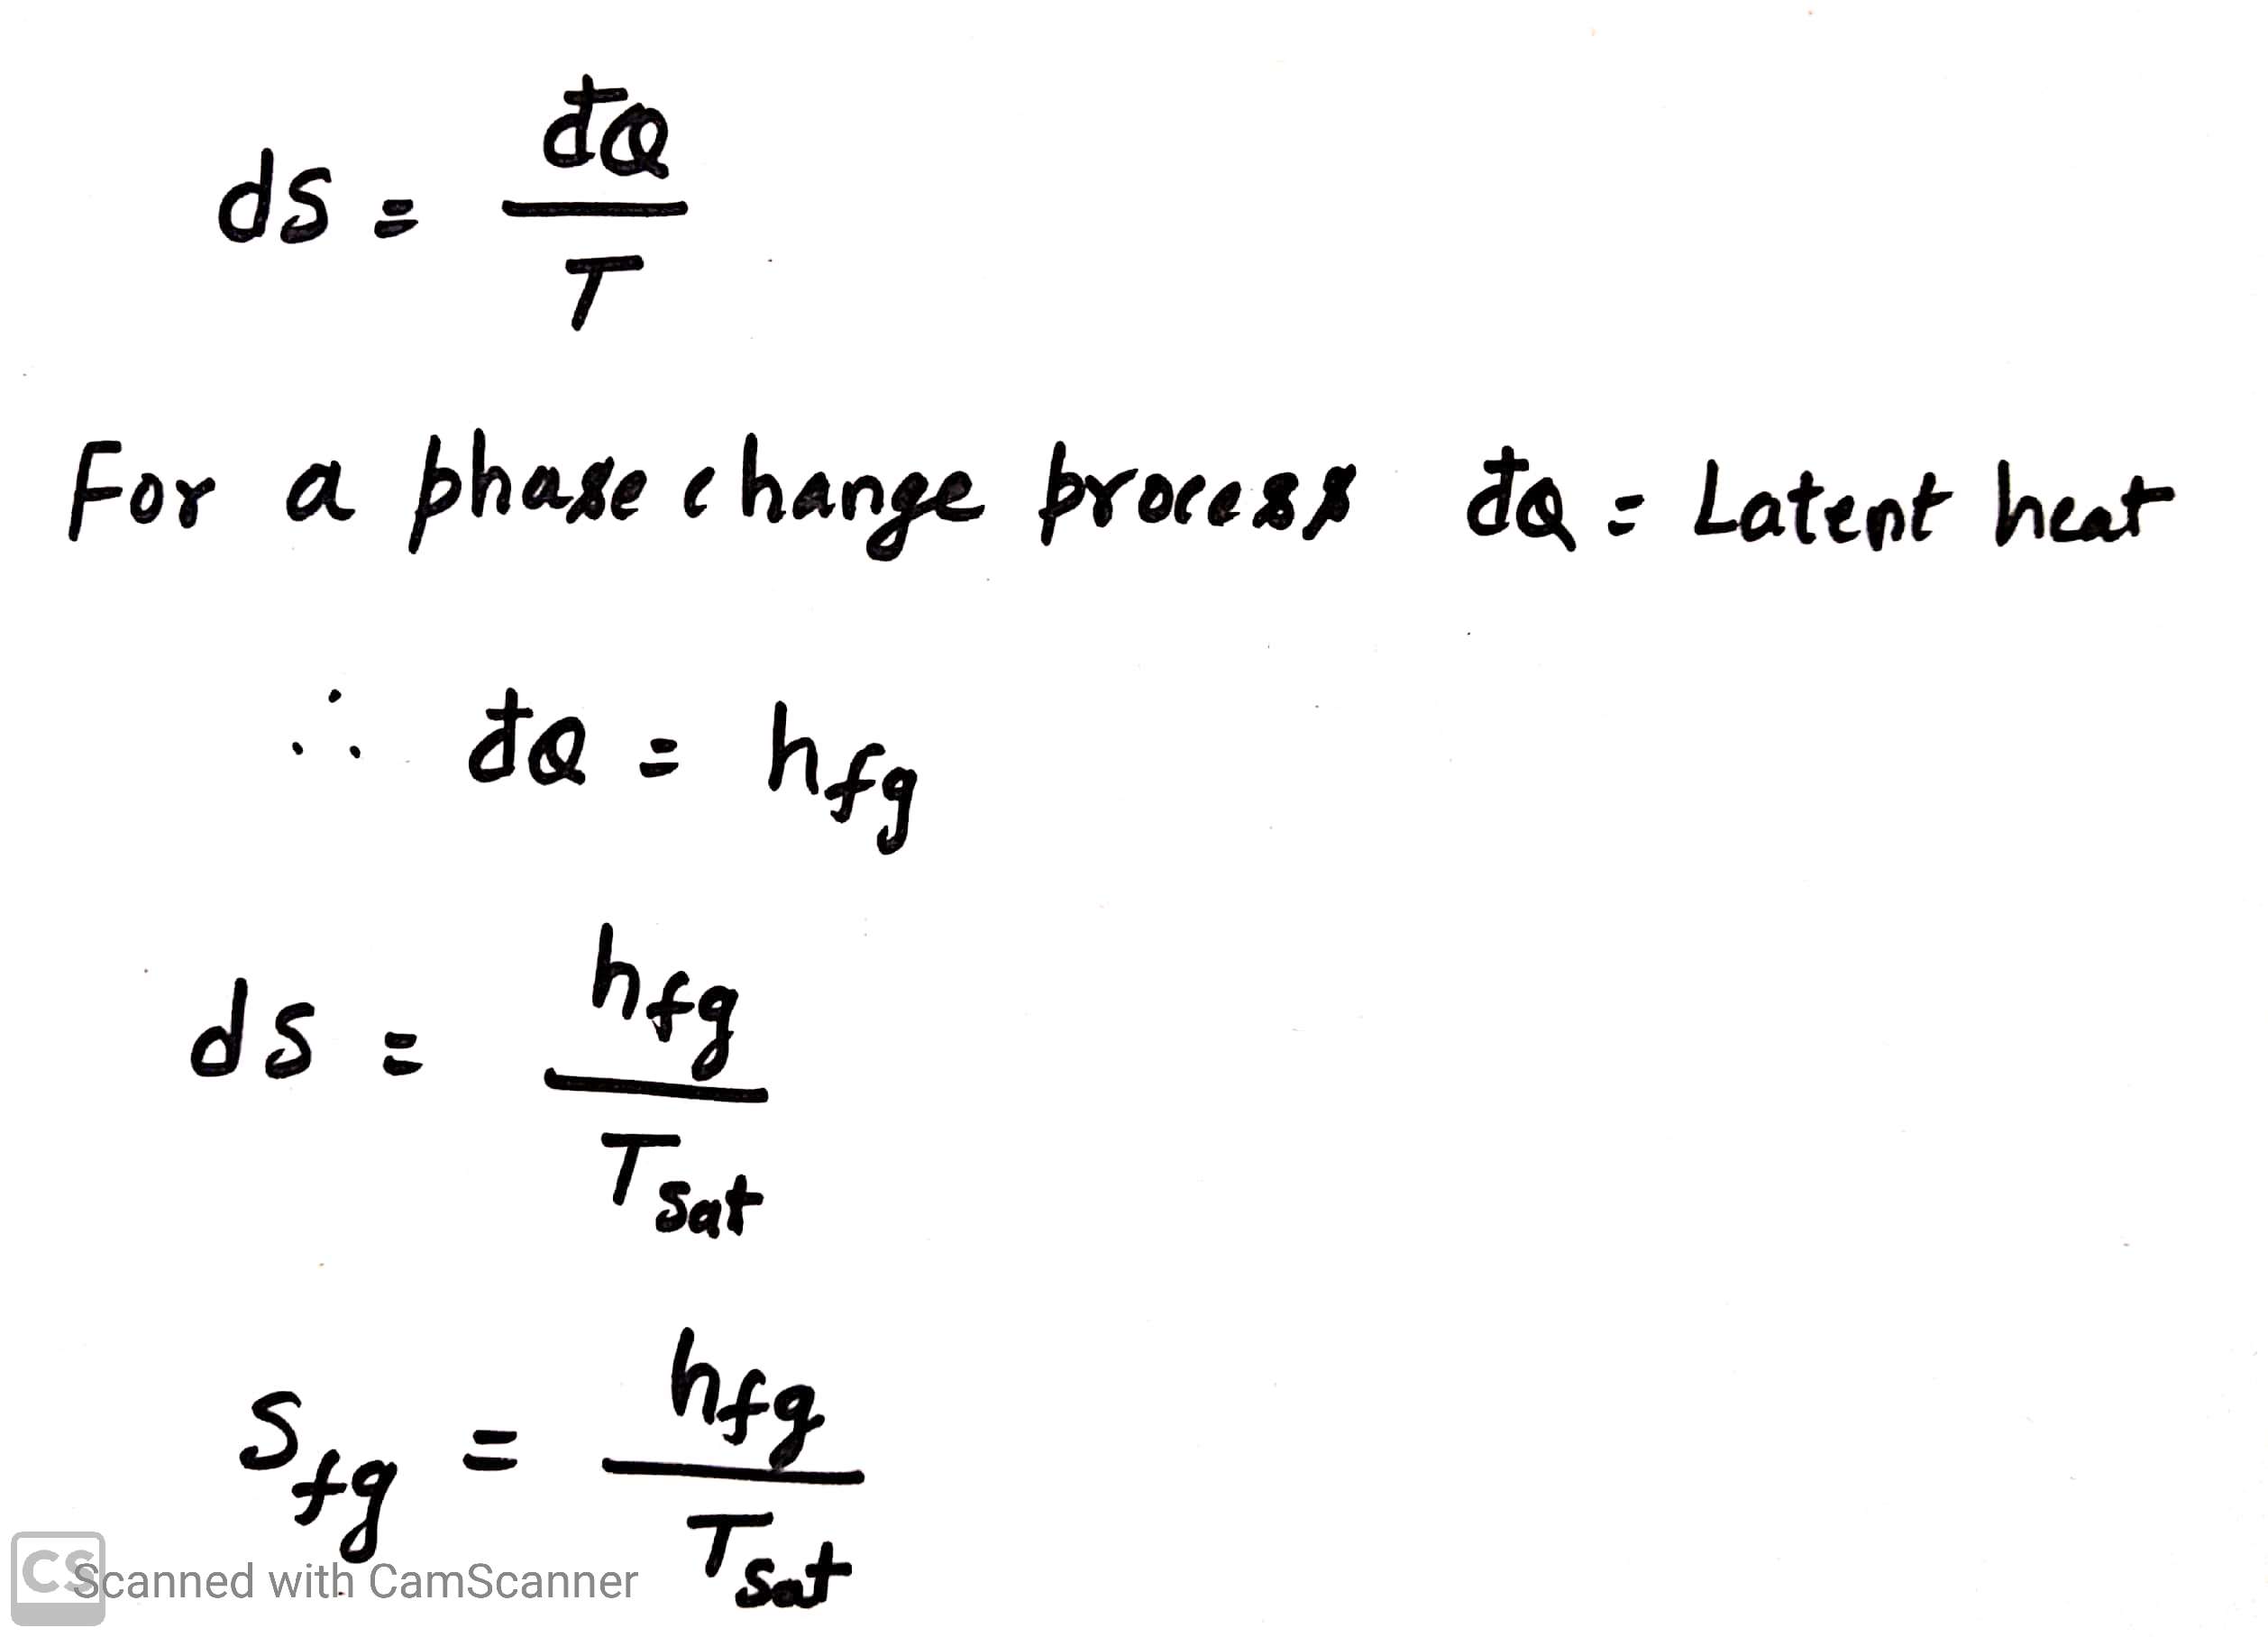 ds = đQ / T
For a phase change process đQ = Latent heat
∴ đQ = hfg
ds = hfg / Tsat
Sfg = hfg / Tsat
CS Scanned with CamScanner